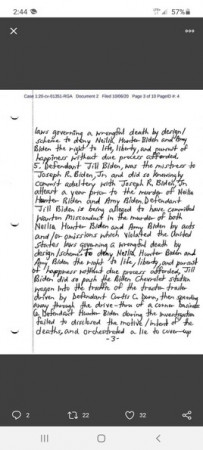 2:44
57%
Case 1:20-cv-01351-RGA Document 2 Filed 10/06/20 Page 3 of 10 PageID #: 4
laws governing a wrongful death by design/
scheme to deny Neilia, Hunter Biden and Amy
Biden the right to life, liberty, and pursuit of
happiness without due process afforded.
5. Defendant Jill Biden, was the mistress to
Joseph R. Biden, Jr. and did so knowingly
commit adultery with Joseph R. Biden, Jr.
atleast a year prior to the murder of Neilia
Hunter Biden and Amy Biden. Defendant
Jill Biden is being alleged to have committed
Wanton Misconduct in the murder of both
Neilia Hunter Biden and Amy Biden by acts
and/or omissions which violated the United
States laws governing a wrongful death by
design/scheme to deny Neilia, Hunter Biden and
Amy Biden the right to life, liberty, and pursuit
of happiness without due process afforded, Jill
Biden did so push the Biden Chevrolet station
wagon into the traffic of the tractor trader
driven by Defendant Curtis C. Dunn, then speeding
away through the drive-thru of a corner business
6. Defendant Hunter Biden during the investigation
failed to disclosed the motive/intent of the
deaths, and orchestrated a lie to cover-up
-3-
2 22 32